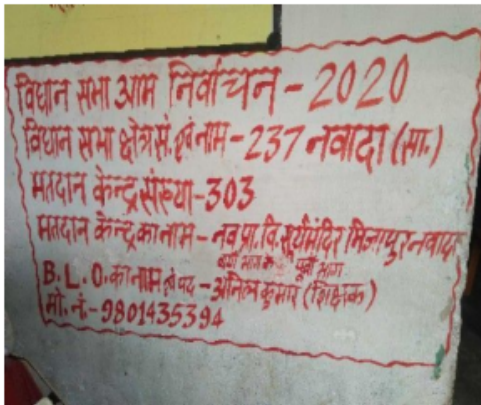 विधान सभा आम निर्वाचन - 2020
विधान सभा क्षेत्र सं. एवं नाम - 237 नवादा (सा.)
मतदान केन्द्र संख्या - 303
मतदान केन्द्र का नाम - नव प्रा. वि. सूर्यमंदिर मिर्जापुर नवादा
पूर्वी भाग
B. L. O. का नाम एवं पद - अनिल कुमार (शिक्षक)
मो. नं. - 9801435394